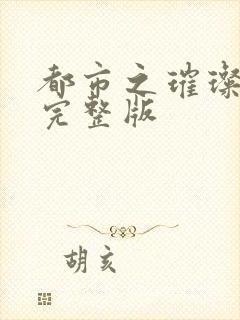 都市之璀璨
完整版
胡亥